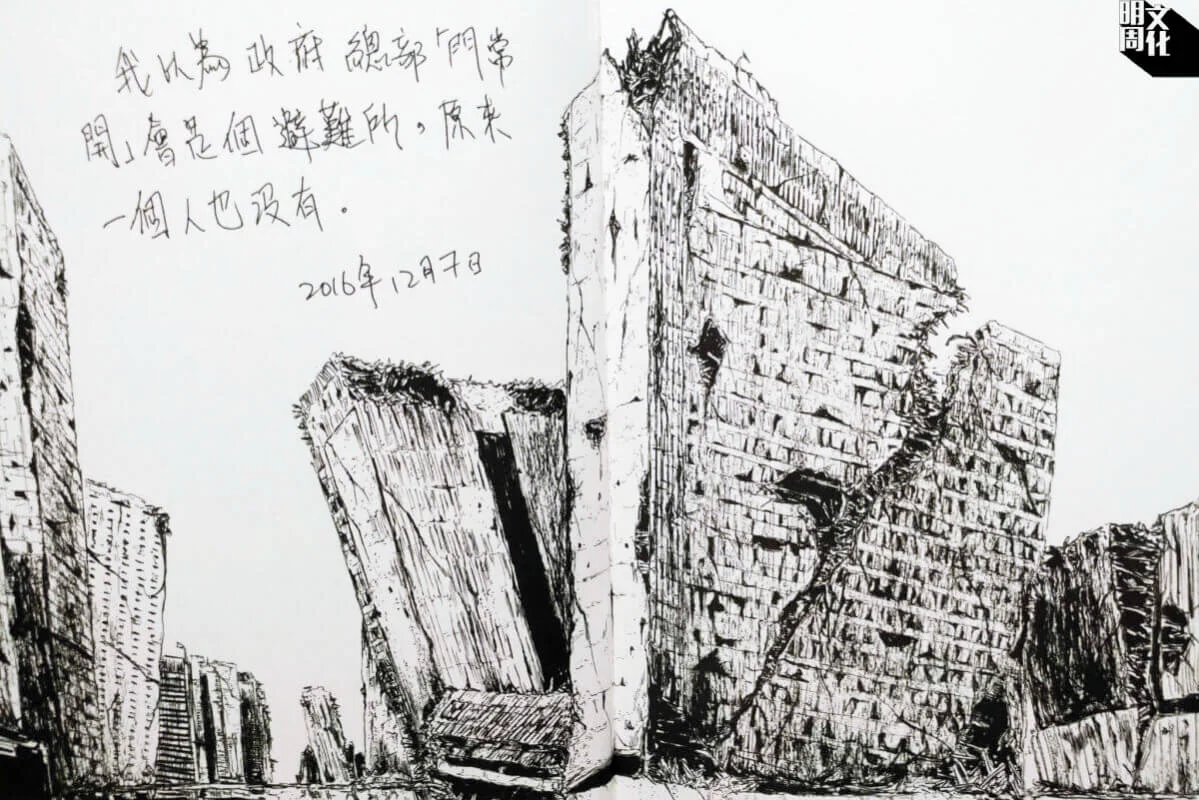 我以為政府總部「門常
開」會是個避難所，原來
一個人也沒有。
2016年12月7日
明周
文化